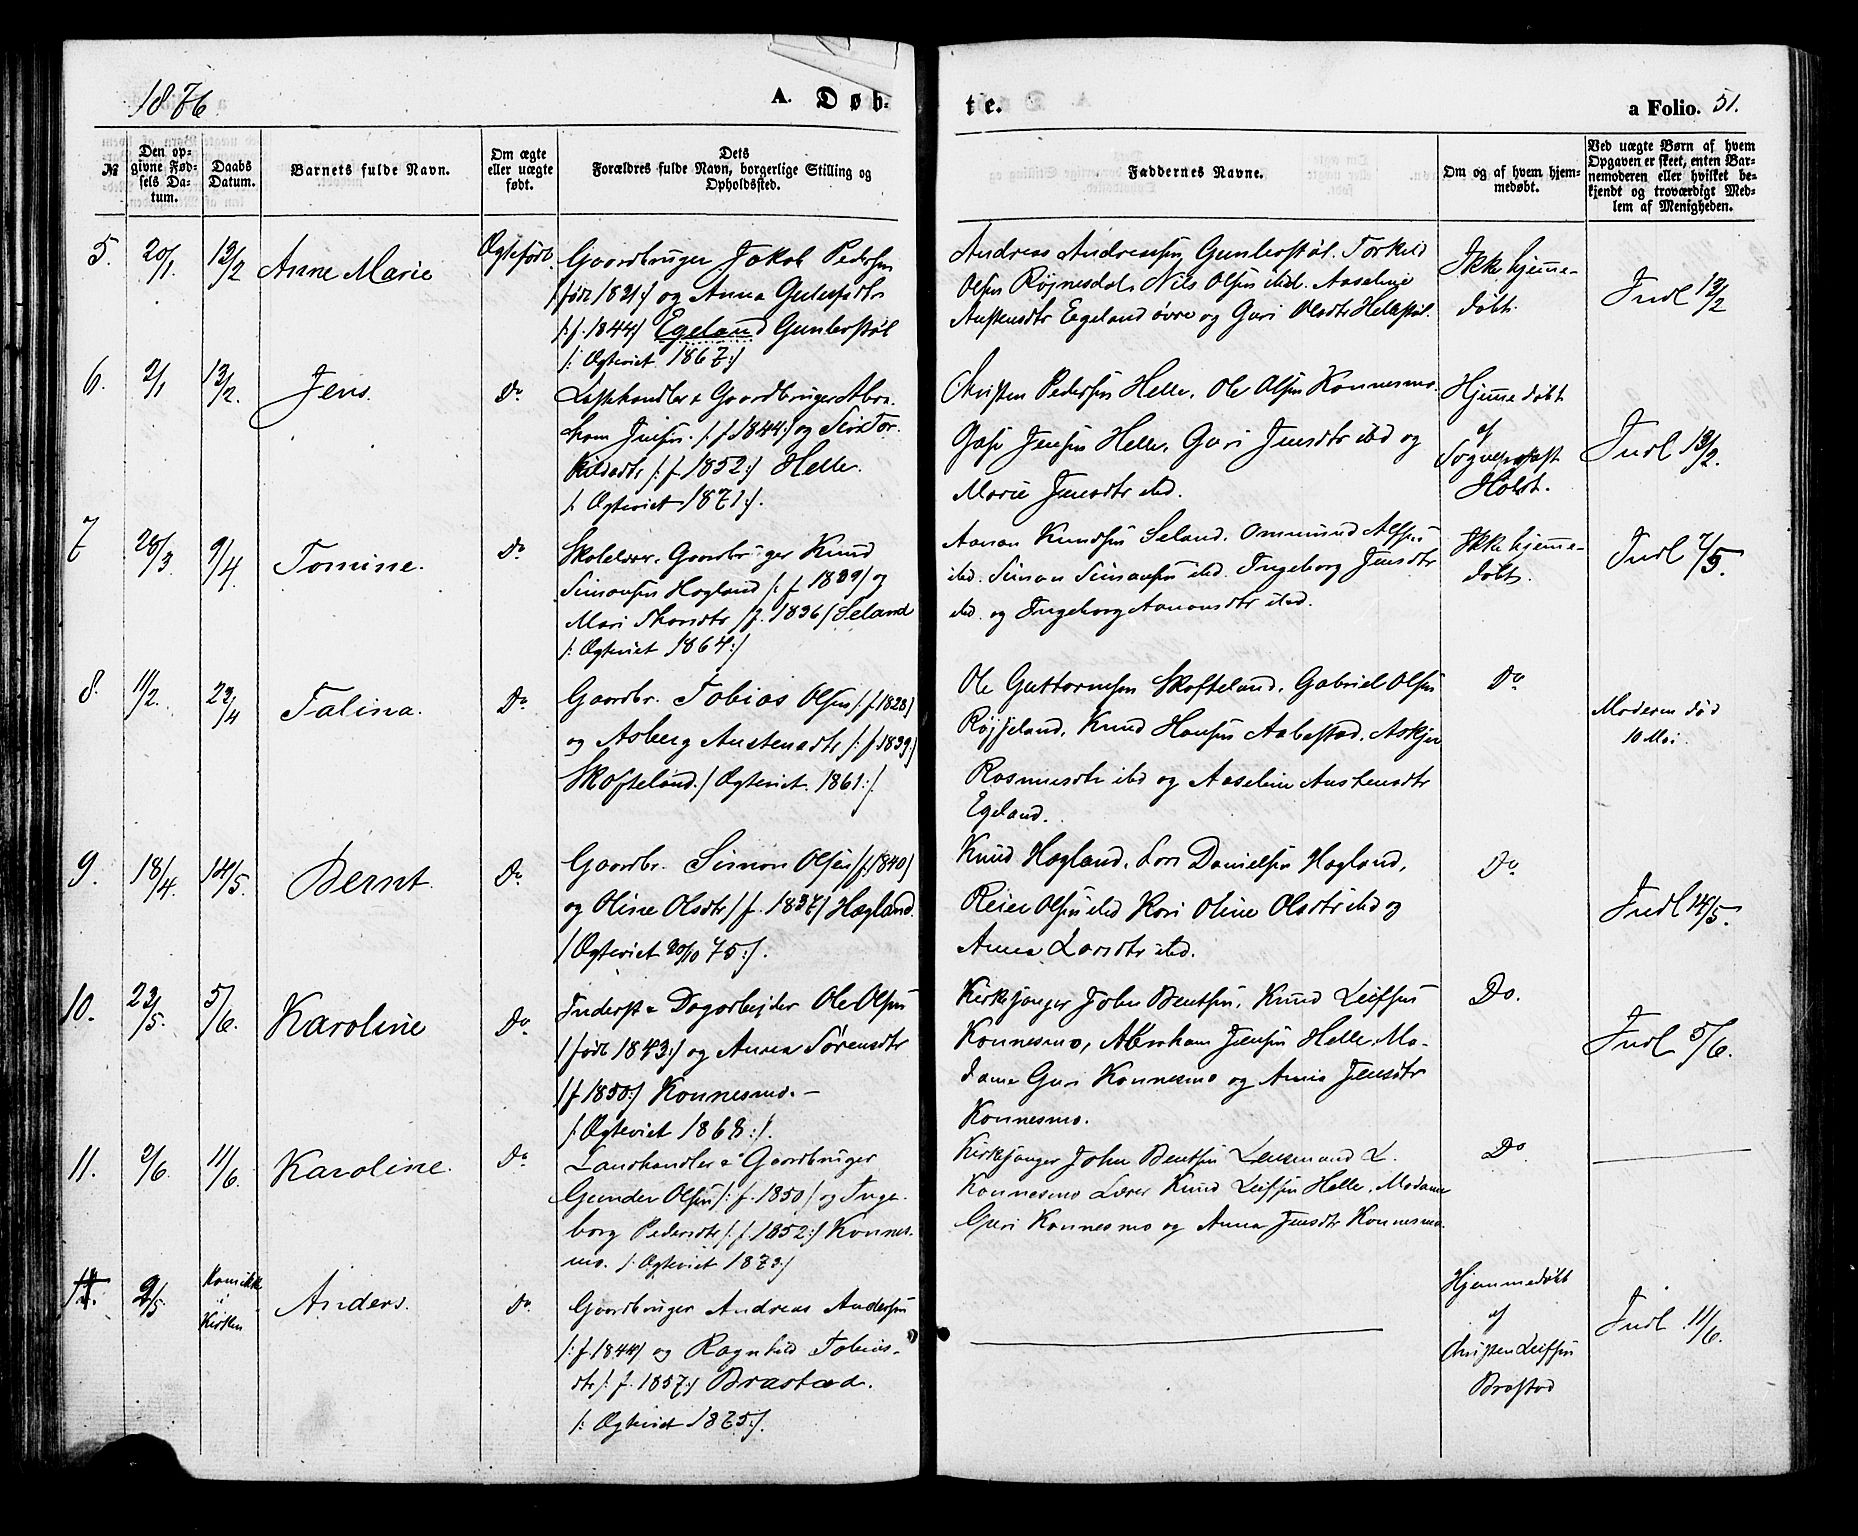 1876.
A. Døb-
te.
a Folio. 51.
№
Den op-
givne Fød-
sels Da-
tum.
Daabs
Datum.
Barnets fulde Navn.
Om ægte
eller uægte
født.
Dets
Forældres fulde Navn, borgerlige Stilling og
Opholdssted.
Faddernes Navne.
Om og af hvem hjem-
medøbt.
Ved uægte Børn af hvem
Opgaven er skeet, enten Bar-
nemoderen eller hvilket be-
kjendt og troværdigt Med-
lem af Menigheden.
5. 20/1. 13/2 Anne Marie Ægtefødt.
Gaardbruger Jakob Pedersen
født 1821:) og Anna
/: f. 1844) Egeland Gunlerstøl
/: Ægteviet 1867:/
Andreas Andreassen Gunlerstøl. Torkild
Olsen Røinesdal, Nils Olsen ibid. Aaseline
Austensdtr Egeland øvre og Guri Olsdtr Hellestøl.
Ikke hjemme-
døbt.
Indl 13/2
6. 2/1 13/2. Jens. Do
Lasthandler & Gaardbruger Abra-
ham Jensen. /: f. 1844:/ og Siri Tor-
kildsdtr /: f. 1852:/ Helle.
/: Ægteviet 1871:/.
Christen Pedersen Helle, Ole Olsen Konnesmo.
Jensen Helle, Guri Jensdtr ibd og
Marie Jensdtr ibd.
Hjemmedøbt
af
Sogneprest
Holst.
Indl 13/2.
7 28/3. 9/4. Tomine. Do
Skolelærer, Gaardbruger Knud
Simonsen Hægland /: f. 1839) og
Mari Thorsdtr /f. 1836/ Seland
/: Ægteviet 1864:/
Aanon Knudsen Seland, Ommund Alfsen
ibd. Simon Simonsen ibd. Ingeborg Jensdtr
ibd. og Ingeborg Aanonsdtr ibd.
Ikke hjemme-
døbt.
Indl 7/5.
8. 11/2. 23/4 Talina. Do
Gaardbr. Tobias Olsen /: f. 1828)
og Asberg Austensdtr /: f. 1839:/
Skofteland. / Ægteviet. 1861:/.
Ole Guttormsen Skofteland, Gabriel Olsen
Røiseland, Knud Hansen Aabestad, Askjer
Rasmusdtr ibd og Aaseline Austensdtr
Egeland.
Do
Moderen død
10 Mai.
9. 18/4. 14/5. Bernt. Do
Gaardbr. Simon Olsen /f. 1840)
og Oline Olsdtr / f. 1837/ Hægland.
/ Ægteviet 20/10 75:/.
Knud Hægland, Lars Danielsen Hægland,
Reier Olsen ibd Kari Oline Olsdtr ibd og
Anna Larsdtr ibd.
Do.
Indl 14/5.
10. 23/5. 5/6. Karoline Do
Inderst & Dagarbeider Ole Olsen
/ født 1843:/ og Anna Sørensdtr
/ f 1850:/ Konnesmo. —
/: Ægteviet 1868:/.
Kirkesanger John Bentsen, Knud Leifsen
Konnesmo, Abraham Jensen Helle, Ma-
dame Guri Konnesmo og Anna Jensdtr
Konnesmo.
Do.
Indl 5/6.
11. 2/6. 11/6. Karoline. Do
Landhandler & Gaardbruger
Gunder Olsen /: f. 1850/ og Inge-
borg Pedersdtr /: f. 1852:/ Konnes-
mo. /: Ægteviet 1873:/
Kirkesanger John Bentsen Lensmand L.
Konnesmo Lærer Knud Leifsen Helle, Madame
Guri Konnesmo og Anna Jensdtr Konnesmo.
Do
2/5. Kom ikke
i
Kirken
Anders. Do
Gaardbruger Andreas Andersen
/: f. 1844/ og Ragnhild Tobias-
dtr /: f. 1857:/ Brastad.
/: Ægteviet 1875:/.
Hjemmedøbt
af
Christen Leifsen
Brastad
Indl 11/6.